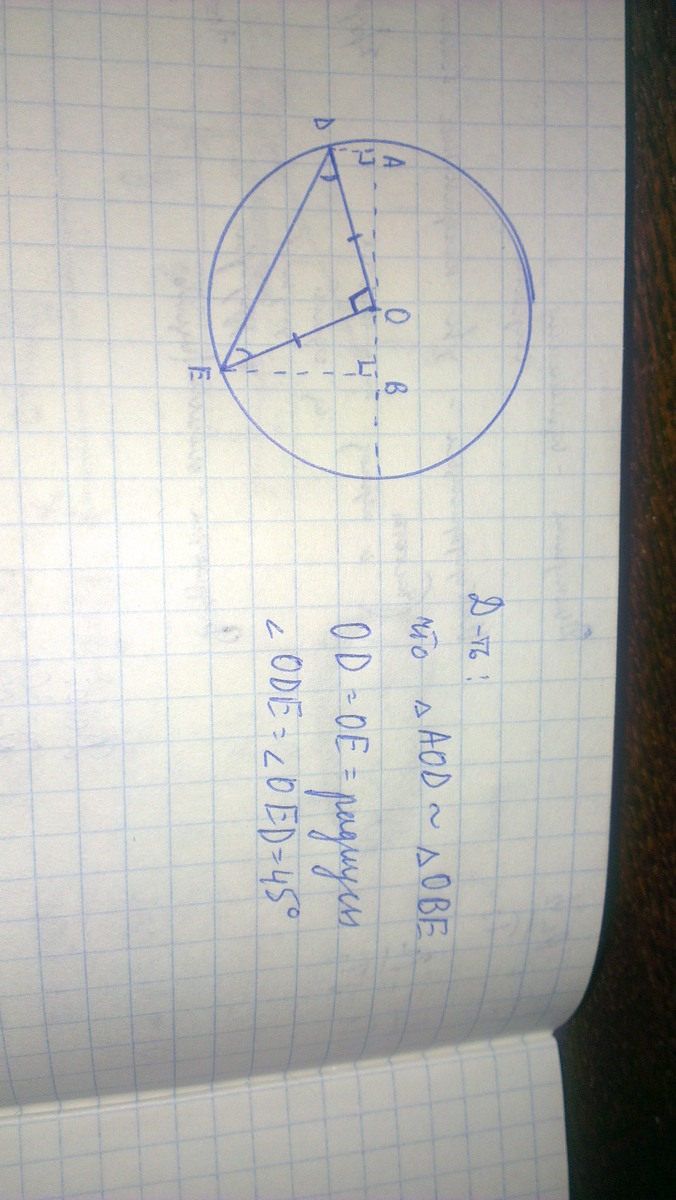 D
A
O
B
E
Д-ть:
что △ AOD ~ △ OBE
OD = OE = радиусы
∠ ODE = ∠ OED = 45°